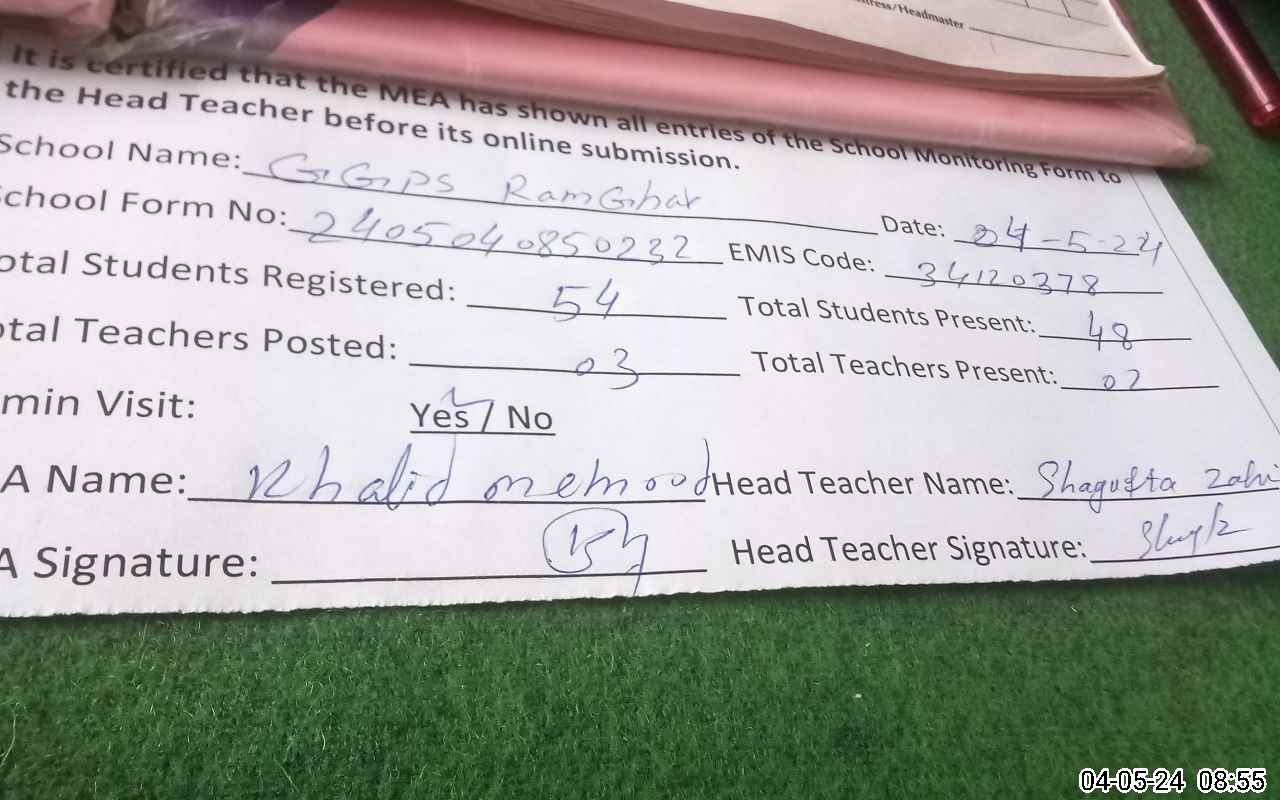 tress/Headmaster
It is certified that the MEA has shown all entries of the School Monitoring Form to
the Head Teacher before its online submission.
School Name: GGPS RamGhar Date: 04-5-24
School Form No: 2405040850232 EMIS Code: 34120378
otal Students Registered: 54 Total Students Present: 48
otal Teachers Posted: 03 Total Teachers Present: 02
min Visit: Yes / No
A Name: Khalid mehmood Head Teacher Name: Shagufta Zahi
A Signature: Head Teacher Signature:
04-05-24 08:55